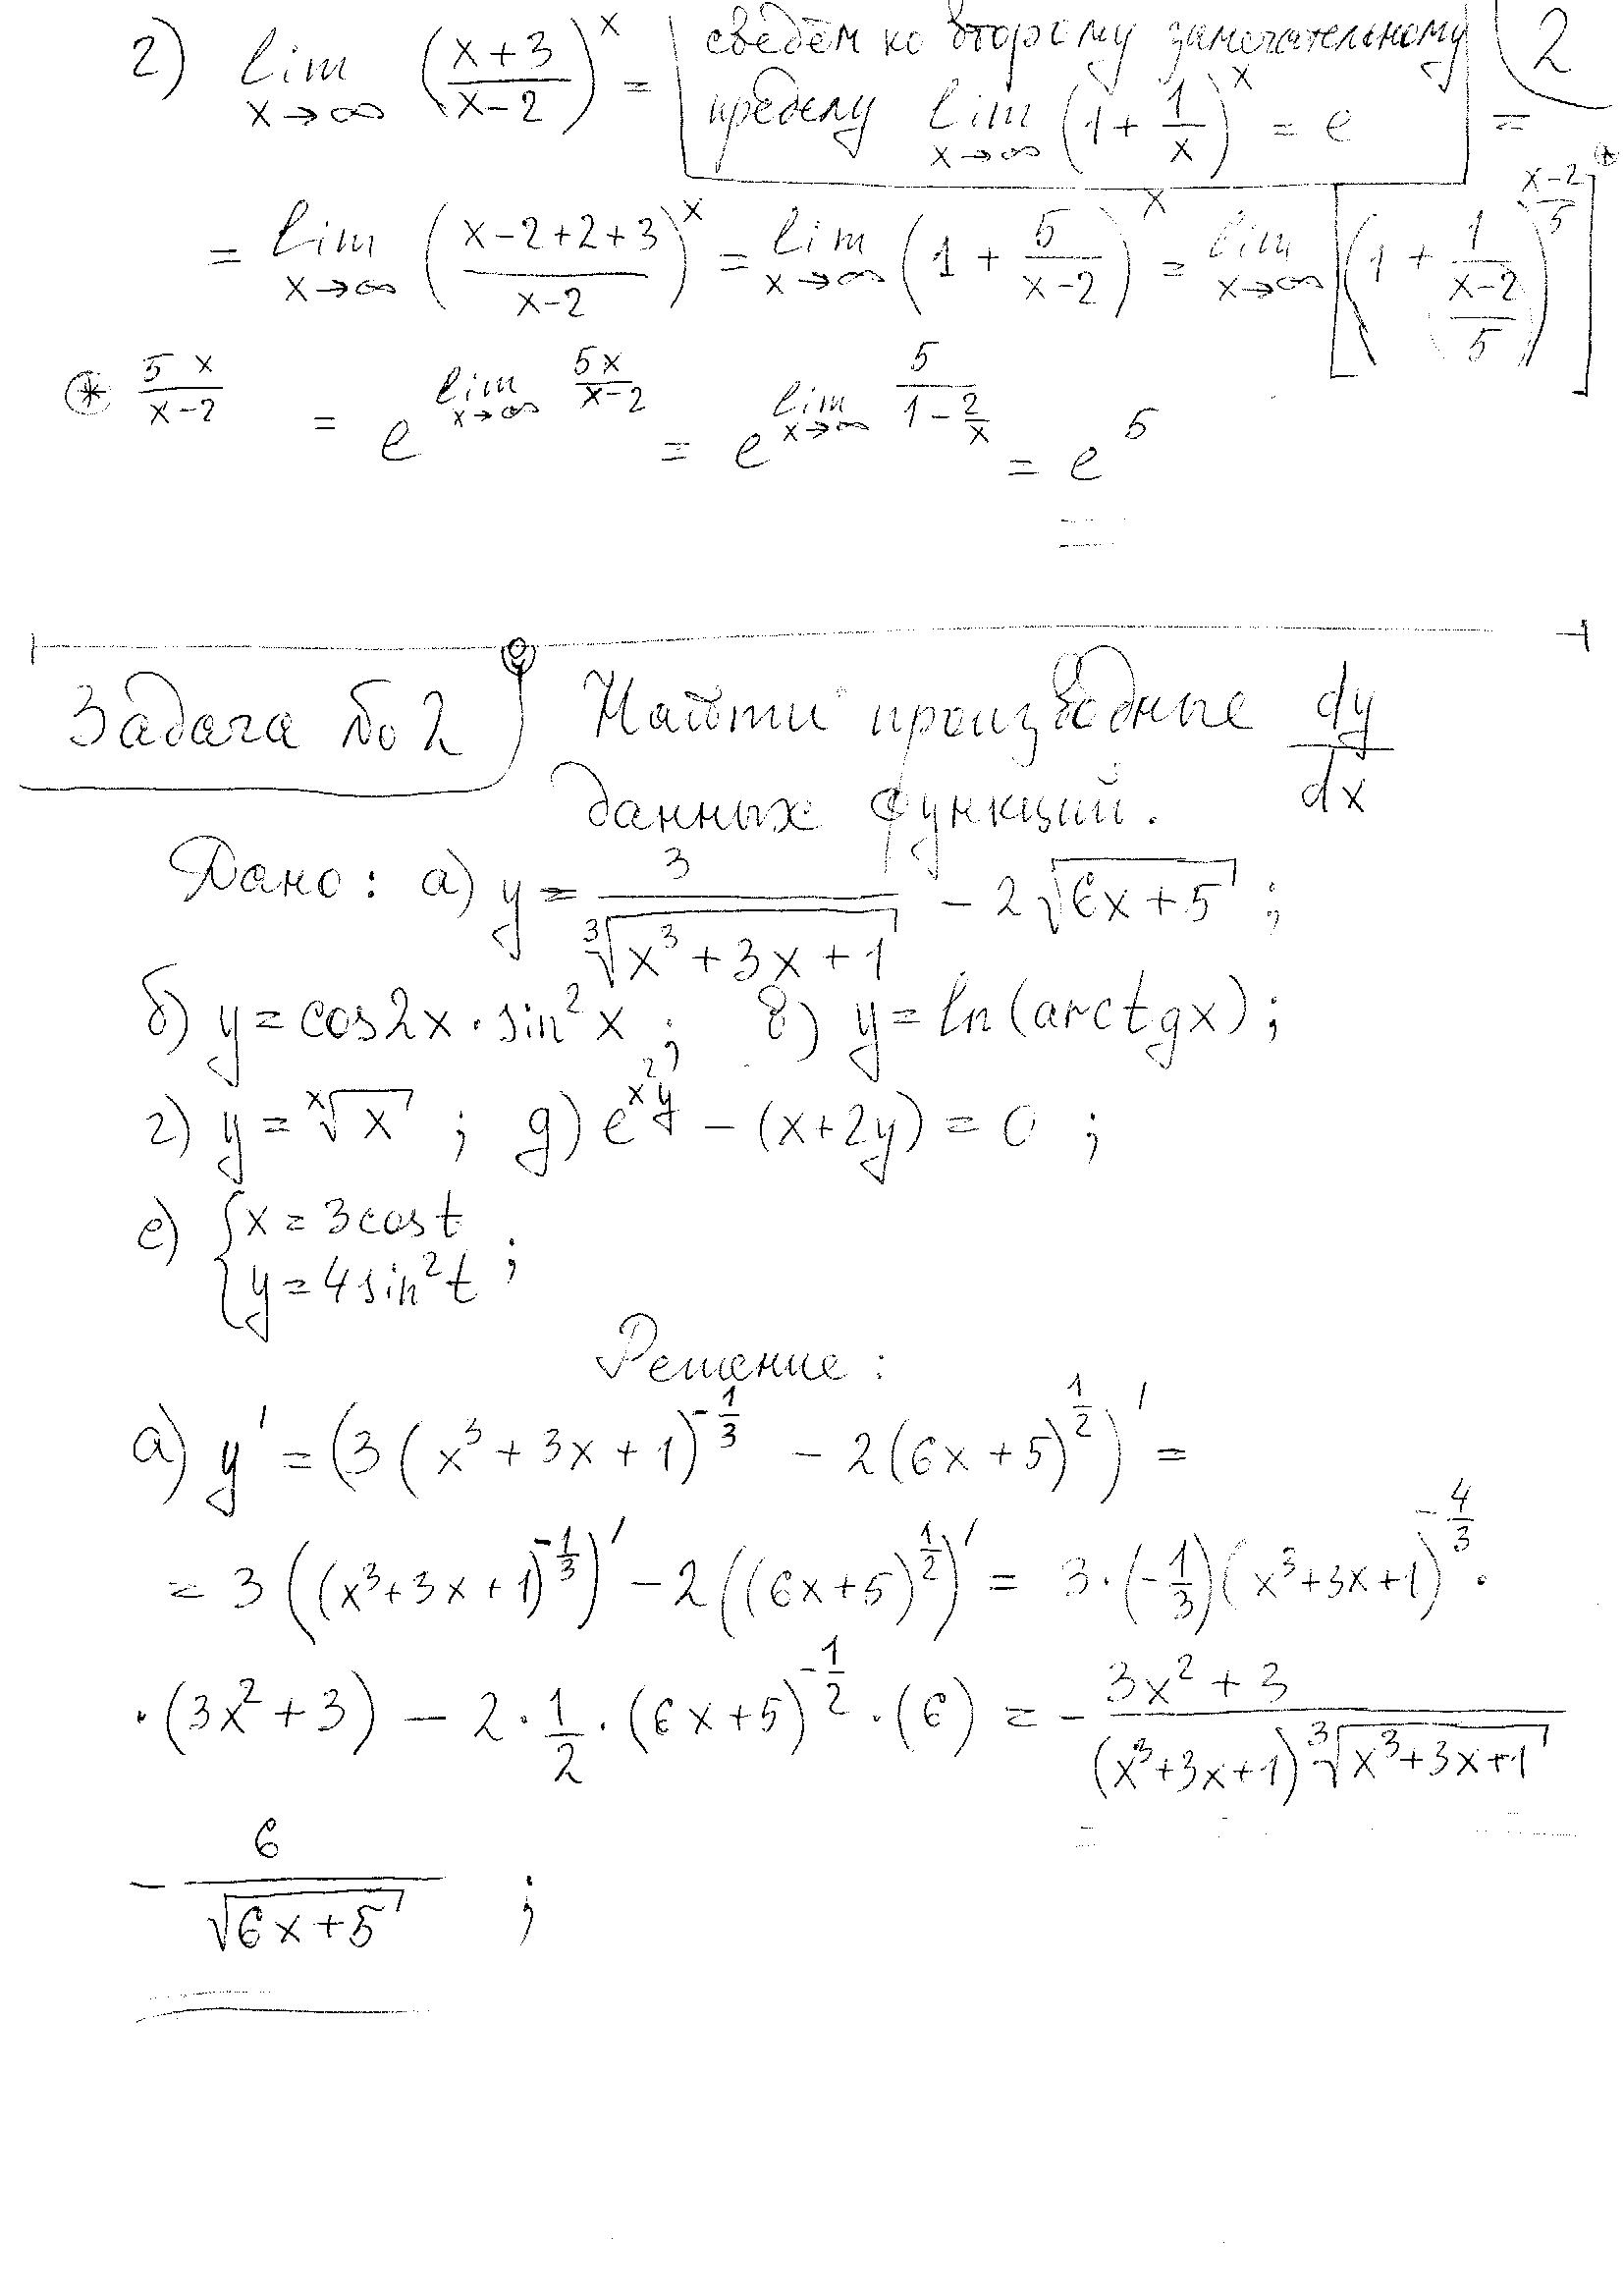 2
г) lim x→∞ ((x+3)/(x-2))^x = [сведём ко второму замечательному
пределу lim x→∞ (1 + 1/x)^x = e] =
= lim x→∞ ((x-2+2+3)/(x-2))^x = lim x→∞ (1 + 5/(x-2))^x = lim x→∞ [(1 + 1/((x-2)/5))^((x-2)/5)]^⊛
⊛ 5x/(x-2) = e^(lim x→∞ 5x/(x-2)) = e^(lim x→∞ 5/(1-2/x)) = e^5
Задача №2 Найти производные dy/dx
данных функций.
Дано: а) y = 3/∛(x³+3x+1) - 2√(6x+5) ;
б) y = cos2x · sin²x ; в) y = ln(arctgx) ;
г) y = ˣ√x ; д) e^(x²y) - (x+2y) = 0 ;
е) { x = 3cost
y = 4sin²t ;
Решение :
а) y' = (3(x³+3x+1)^(-1/3) - 2(6x+5)^(1/2))' =
= 3((x³+3x+1)^(-1/3))' - 2((6x+5)^(1/2))' = 3·(-1/3)(x³+3x+1)^(-4/3) ·
· (3x²+3) - 2 · 1/2 · (6x+5)^(-1/2) · (6) = - (3x²+3)/((x³+3x+1)∛(x³+3x+1))
- 6/√(6x+5) ;